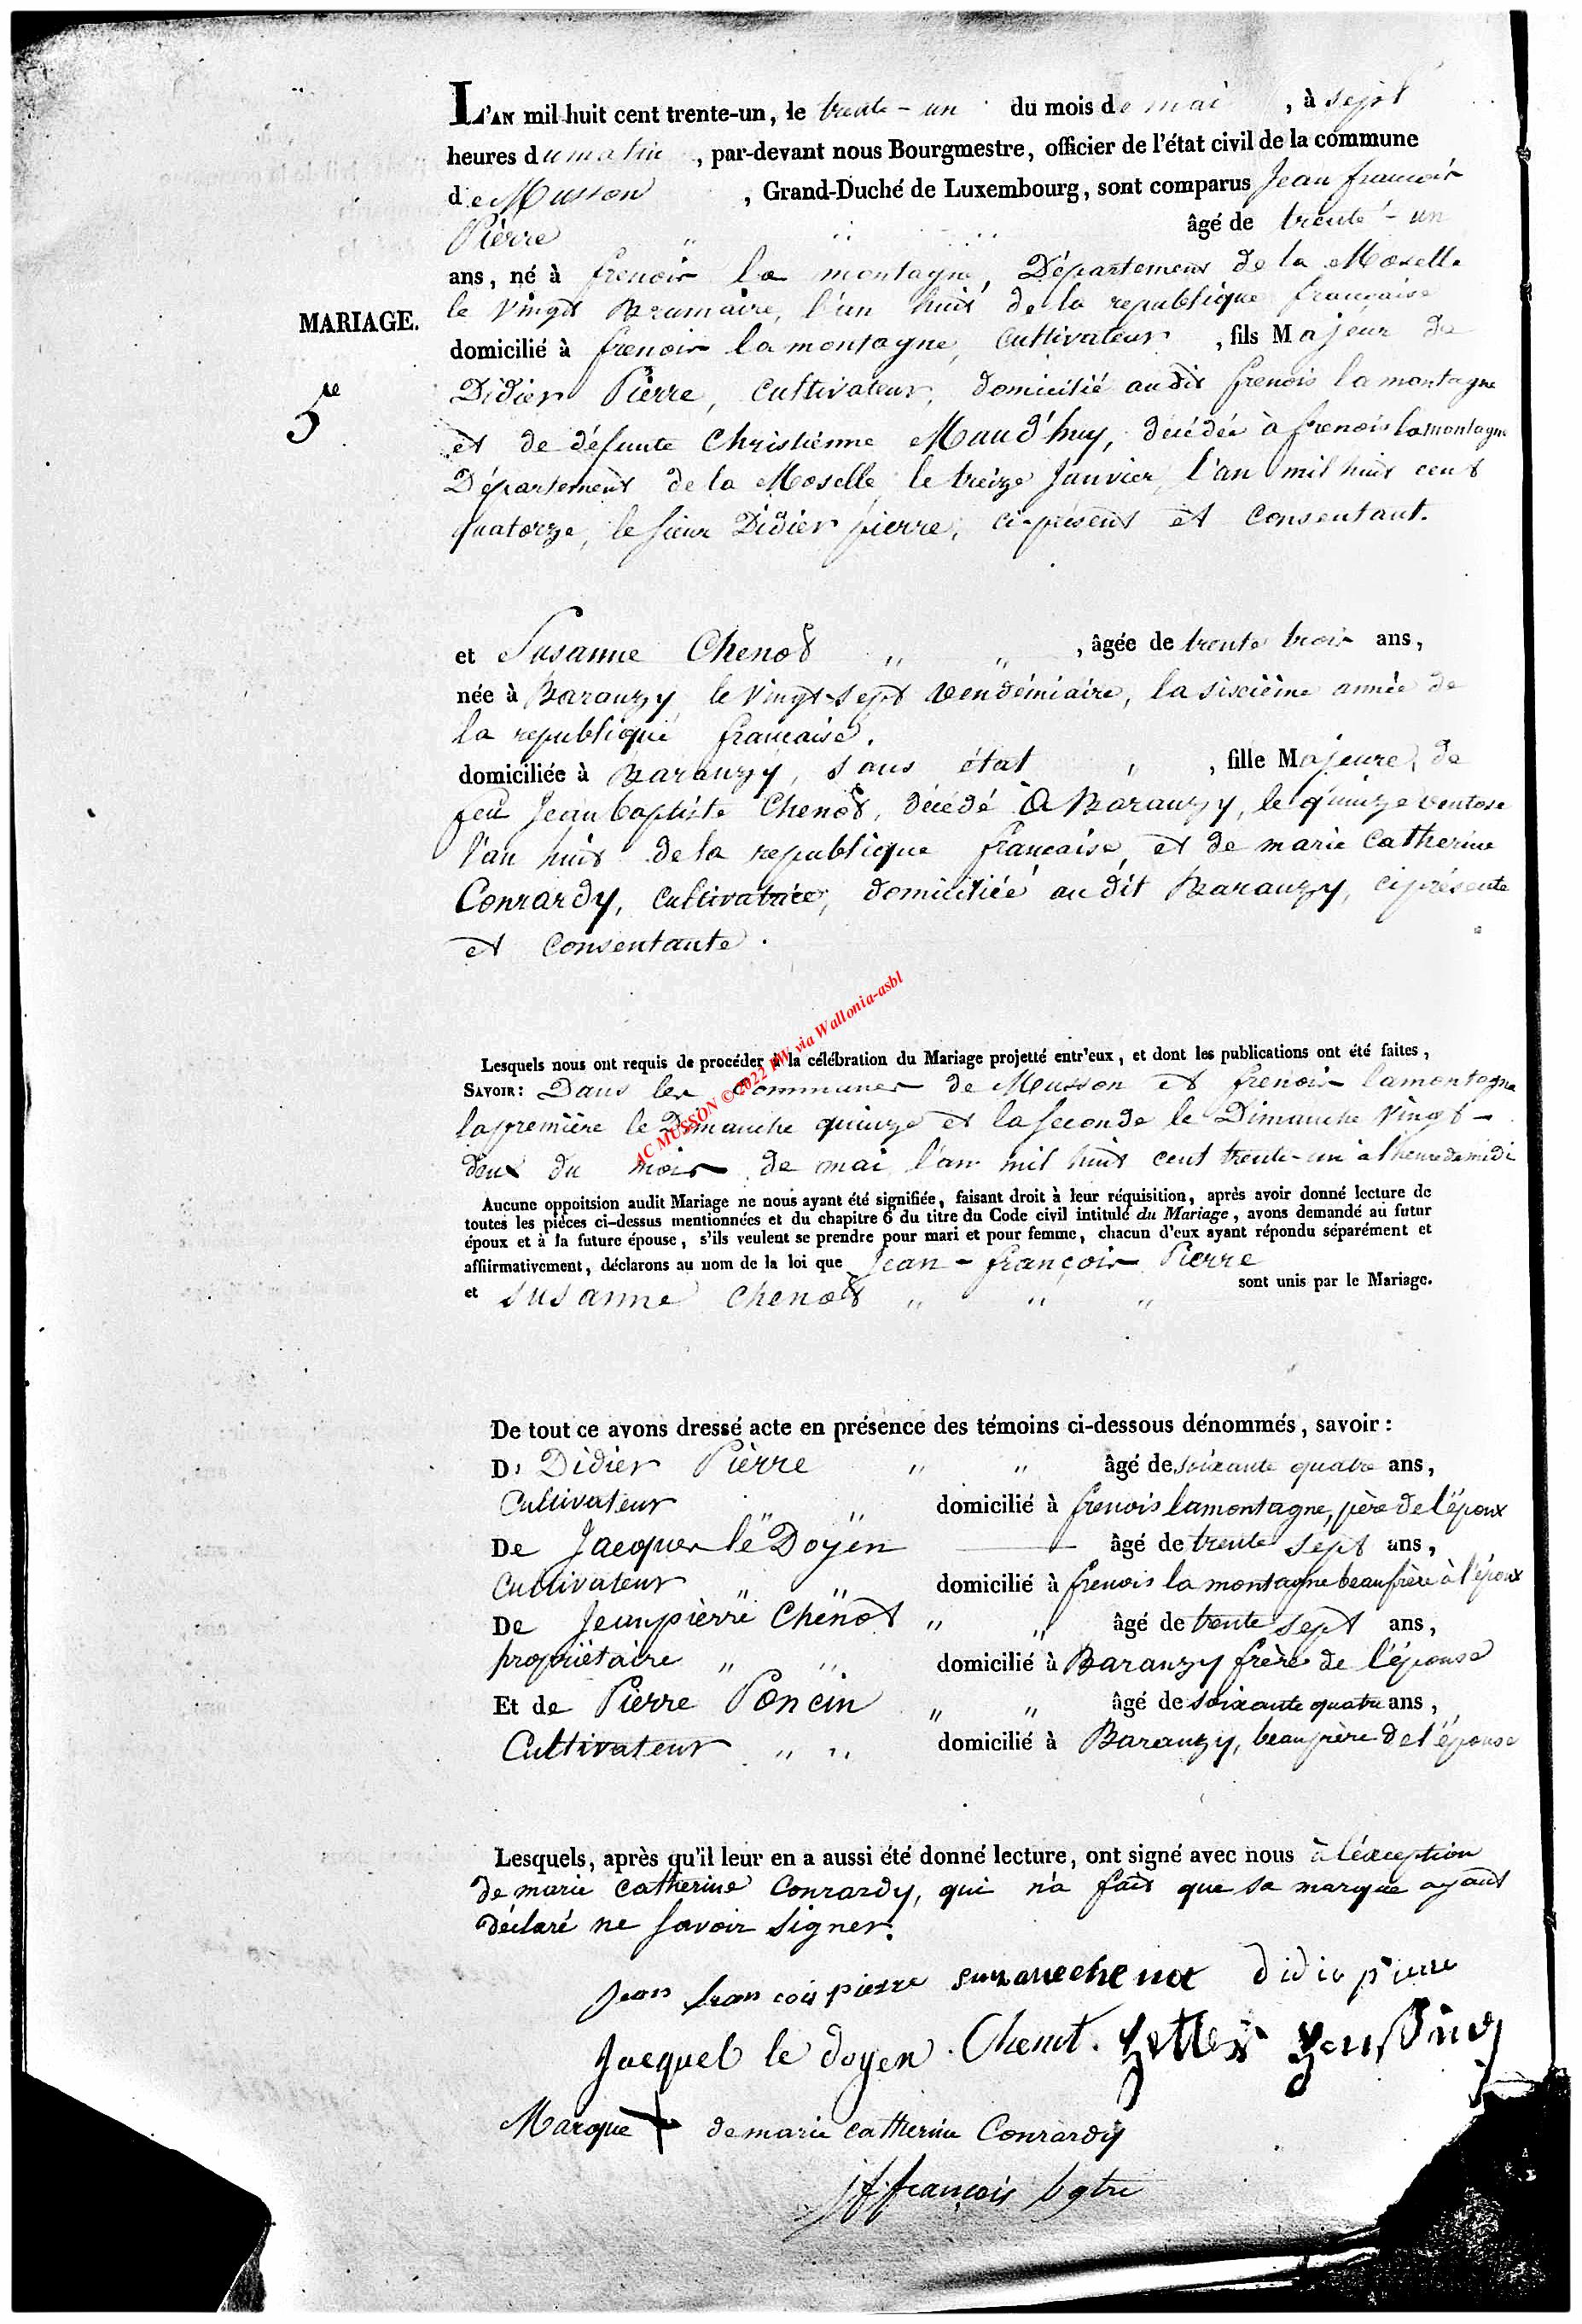 L'AN mil huit cent trente-un, le trente-un du mois de mai, à sept
heures du matin, par-devant nous Bourgmestre, officier de l'état civil de la commune
de Musson, Grand-Duché de Luxembourg, sont comparus Jean françois
Pièrre " " " âgé de trente-un
ans, né à frenois la montagne, Département de la Moselle
le vingt Brumaire, l'an huit de la republique française
MARIAGE.
domicilié à frenois la montagne, cultivateur, fils Majeur de
5e
Didier Pièrre, cultivateur, domicilié audit frenois la montagne
et de défunte Christienne Maud'huy, décédée à frenois lamontagne
Département de la Moselle, le treize Janvier, l'an mil huit cent
quatorze, le sieur Didier pierre, ci-présent et Consentant.
et Susanne Chenot " ", âgée de trente trois ans,
née à Baranzy, le vingt-sept vendémiaire, la sixième année de
la republique française.
domiciliée à Baranzy, sans état ", fille Majeure, de
feu Jean baptiste Chenot, décédé à Baranzy, le quinze ventose
l'an huit de la republique française, et de marie Catherine
Conrardy, cultivatrice, domiciliée audit Baranzy, ciprésente
et Consentante.
Lesquels nous ont requis de procéder à la célébration du Mariage projetté entr'eux, et dont les publications ont été faites,
SAVOIR: Dans les Communes de Musson et frenois lamontagne
la première le Dimanche quinze et la seconde le Dimanche vingt-
deux du mois de mai l'an mil huit cent trente-un à l'heure de midi
AC MUSSON © 2022 PW via Wallonia-asbl
Aucune oppoitsion audit Mariage ne nous ayant été signifiée, faisant droit à leur réquisition, après avoir donné lecture de
toutes les pièces ci-dessus mentionnées et du chapitre 6 du titre du Code civil intitulé du Mariage, avons demandé au futur
époux et à la future épouse, s'ils veulent se prendre pour mari et pour femme, chacun d'eux ayant répondu séparément et
affiirmativement, déclarons au nom de la loi que Jean-françois Pierre
et Susanne Chenot " " " sont unis par le Mariage.
De tout ce avons dressé acte en présence des témoins ci-dessous dénommés, savoir:
De Didier Pièrre " " âgé de soixante quatre ans,
Cultivateur domicilié à frenois lamontagne, père de l'époux
De Jacques le Doyen âgé de trente sept ans,
Cultivateur " " domicilié à frenois la montagne beaufrère à l'époux
De Jeanpièrre Chenot " " âgé de trente sept ans,
propriétaire " " domicilié à Baranzy frère de l'épouse
Et de Pierre Poncin " " âgé de soixante quatre ans,
Cultivateur " " domicilié à Baranzy, beaupère de l'épouse
Lesquels, après qu'il leur en a aussi été donné lecture, ont signé avec nous à l'éxception
de marie Catherine Conrardy, qui n'a fait que sa marque ayant
déclaré ne savoir signer.
Jean francois pierre susanne chenot didier pierre
Jacques le doyen Chenot.
Marque + de marie Catherine Conrardy
jf françois bgtre